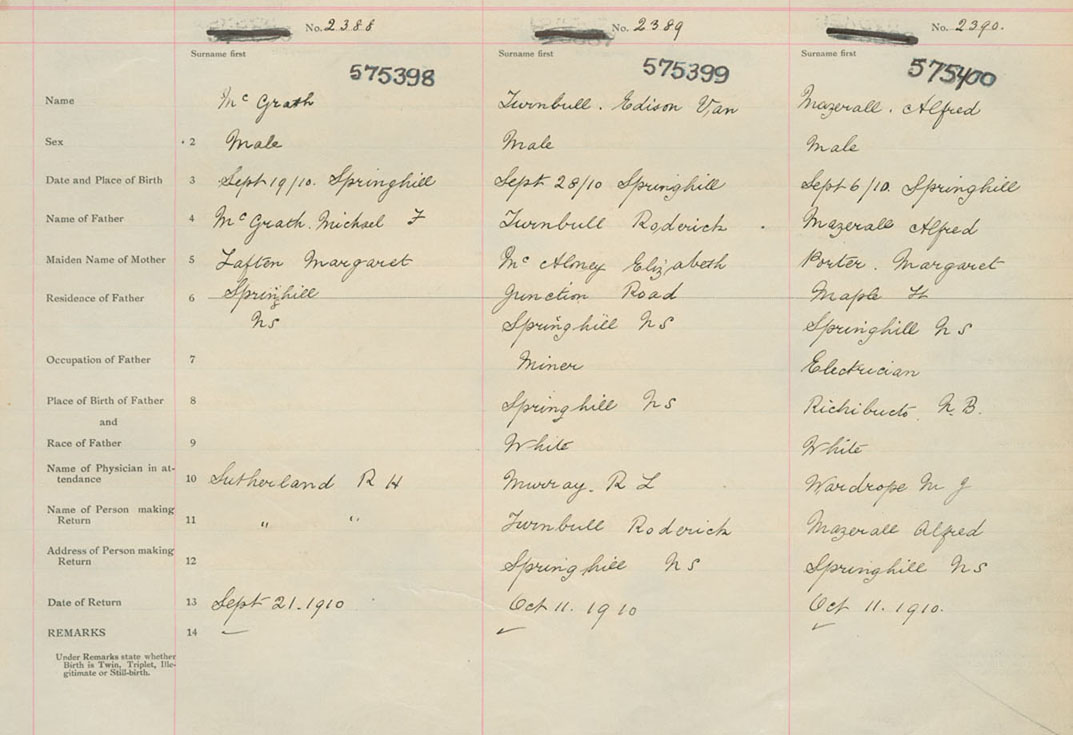 No. 2388 No. 2389 No. 2390.
Surname first Surname first Surname first
575398 575399 575400
Name Mc Grath Turnbull. Edison Van Mazerall. Alfred
Sex 2 Male Male Male
Date and Place of Birth 3 Sept 19/10. Springhill Sept 28/10 Springhill Sept 6/10. Springhill
Name of Father 4 Mc Grath. Michael F Turnbull Roderick Mazerall Alfred
Maiden Name of Mother 5 Laften Margaret Mc Aloney Elizabeth Porter. Margaret
Residence of Father 6 Springhill Junction Road Maple St
NS Springhill NS Springhill NS
Occupation of Father 7 Miner Electrician
Place of Birth of Father 8 Springhill NS Richibucto N.B.
and
Race of Father 9 White White
Name of Physician in at-
tendance 10 Sutherland R H Murray. R L Wardrope M J
Name of Person making
Return 11 " " Turnbull Roderick Mazerall Alfred
Address of Person making
Return 12 Springhill NS Springhill NS
Date of Return 13 Sept 21.1910 Oct 11. 1910 Oct 11. 1910.
REMARKS 14
Under Remarks state whether
Birth is Twin, Triplet, Ille-
gitimate or Still-birth.